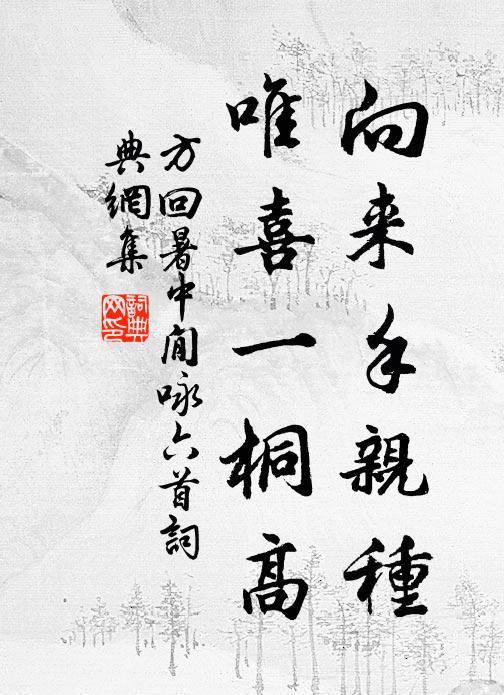 向来手親種
唯喜一桐高
方回暑中閒咏六首詞
典網集
詞典
网印